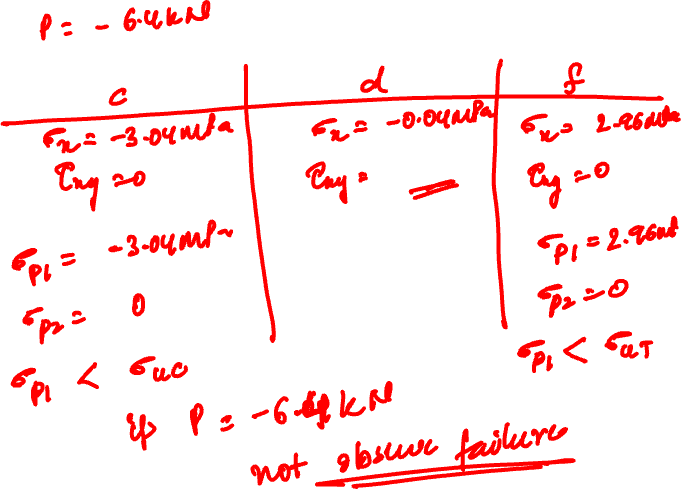 P = - 6.4 kN
c d f
σx = -3.04 MPa σx = -0.04 MPa σx = 2.96 MPa
τxy = 0 τxy = τxy = 0
σp1 = -3.04 MPa σp1 = 2.96 MPa
σp2 = 0 σp2 = 0
σp1 < σuc σp1 < σuT
if P = -6.4 kN
not observe failure